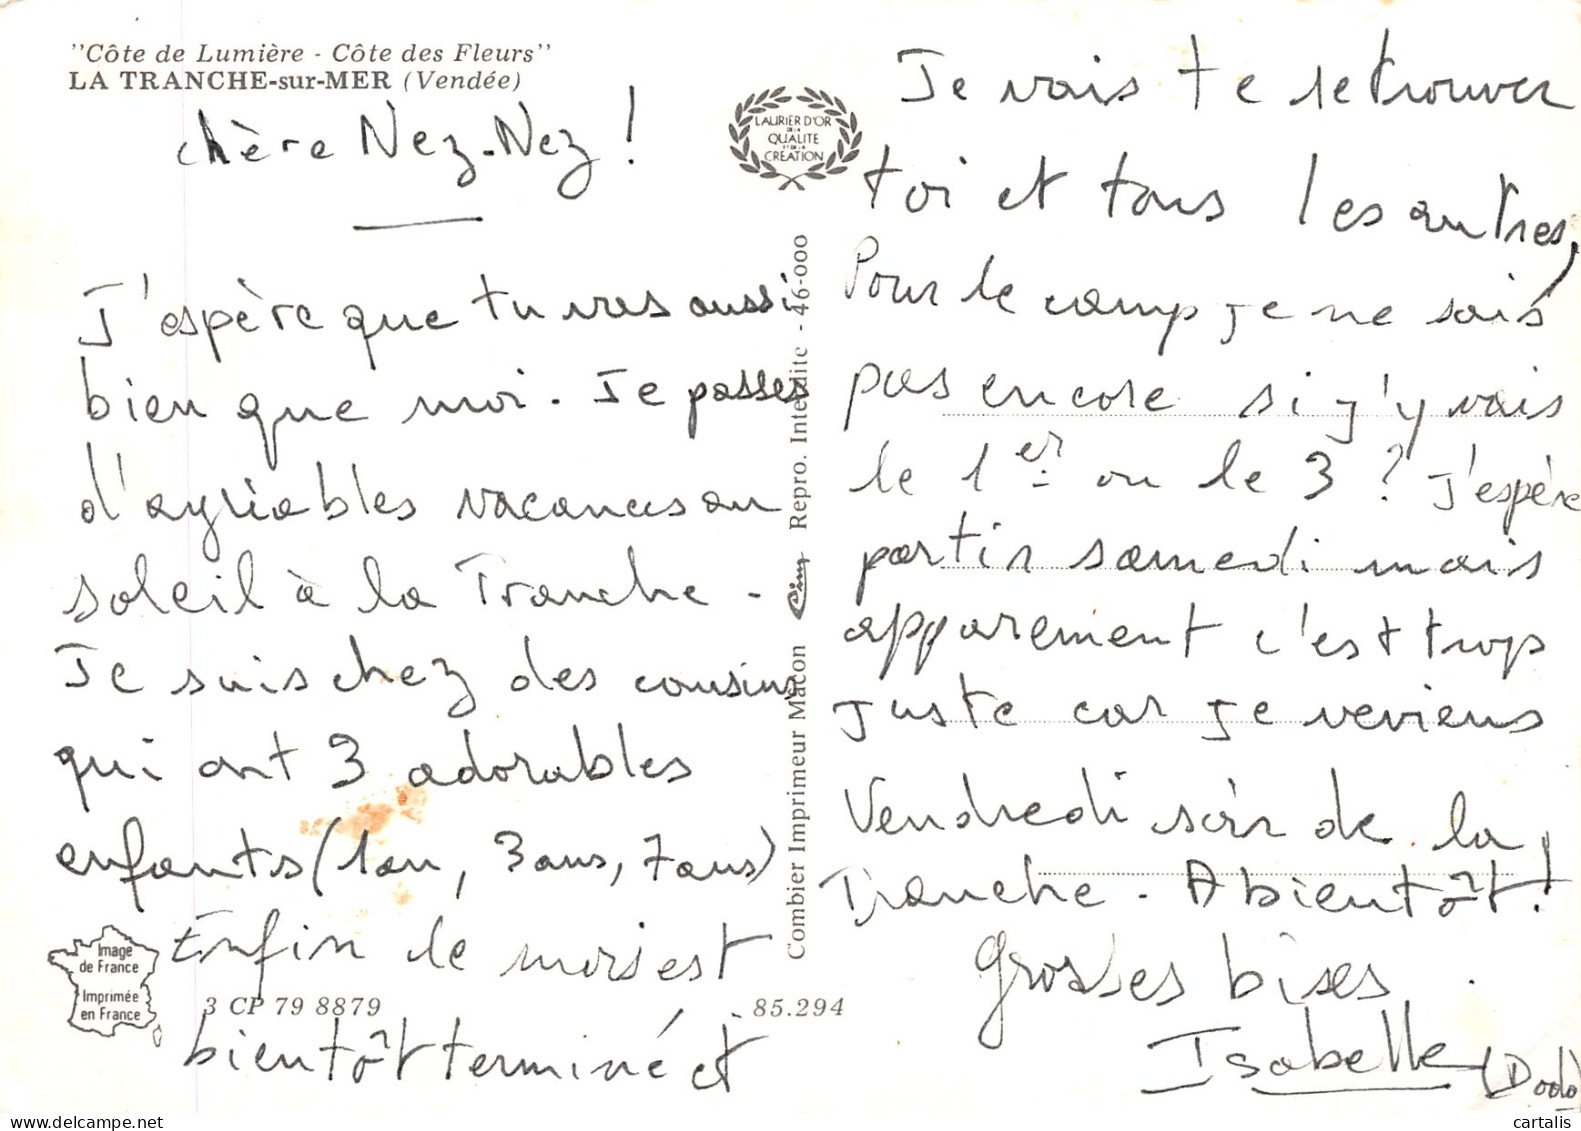 "Côte de Lumière - Côte des Fleurs"
LA TRANCHE-sur-MER (Vendée)
chère Nez-Nez !
J'espère que tu vas aussi
bien que moi. Je passes
d'agriables vacances au
soleil à la Tranche.
Je suis chez des cousins
qui ont 3 adorables
enfants (1 an, 3 ans, 7 ans)
Enfin le mois est
bientôt terminé et
Image
de France
Imprimée
en France
3 CP 79 8879
85.294
LAURIER D'OR
DE LA
QUALITE
ET DE LA
CREATION
Combier Imprimeur Macon Cim Repro. Interdite - 46-000
Je vais te retrouver
toi et tous les autres,
Pour le camp je ne sais
pas encore si j'y vais
le 1er ou le 3 ? J'espère
partir samedi mais
apparement c'est trop
juste car je reviens
Vendredi soir de la
Tranche. A bientôt !
Grosses bises.
Isabelle (Dodo)
cartalis